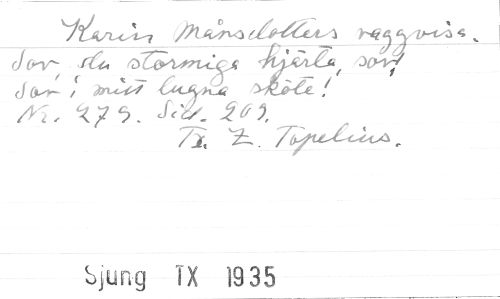 Karin Månsdotters vaggvisa.
Sov, du stormiga hjärta, sov!
Sov i mitt lugna sköte!
Nr. 279. Sid. 209.
Tx. Z. Topelius.
Sjung TX 1935